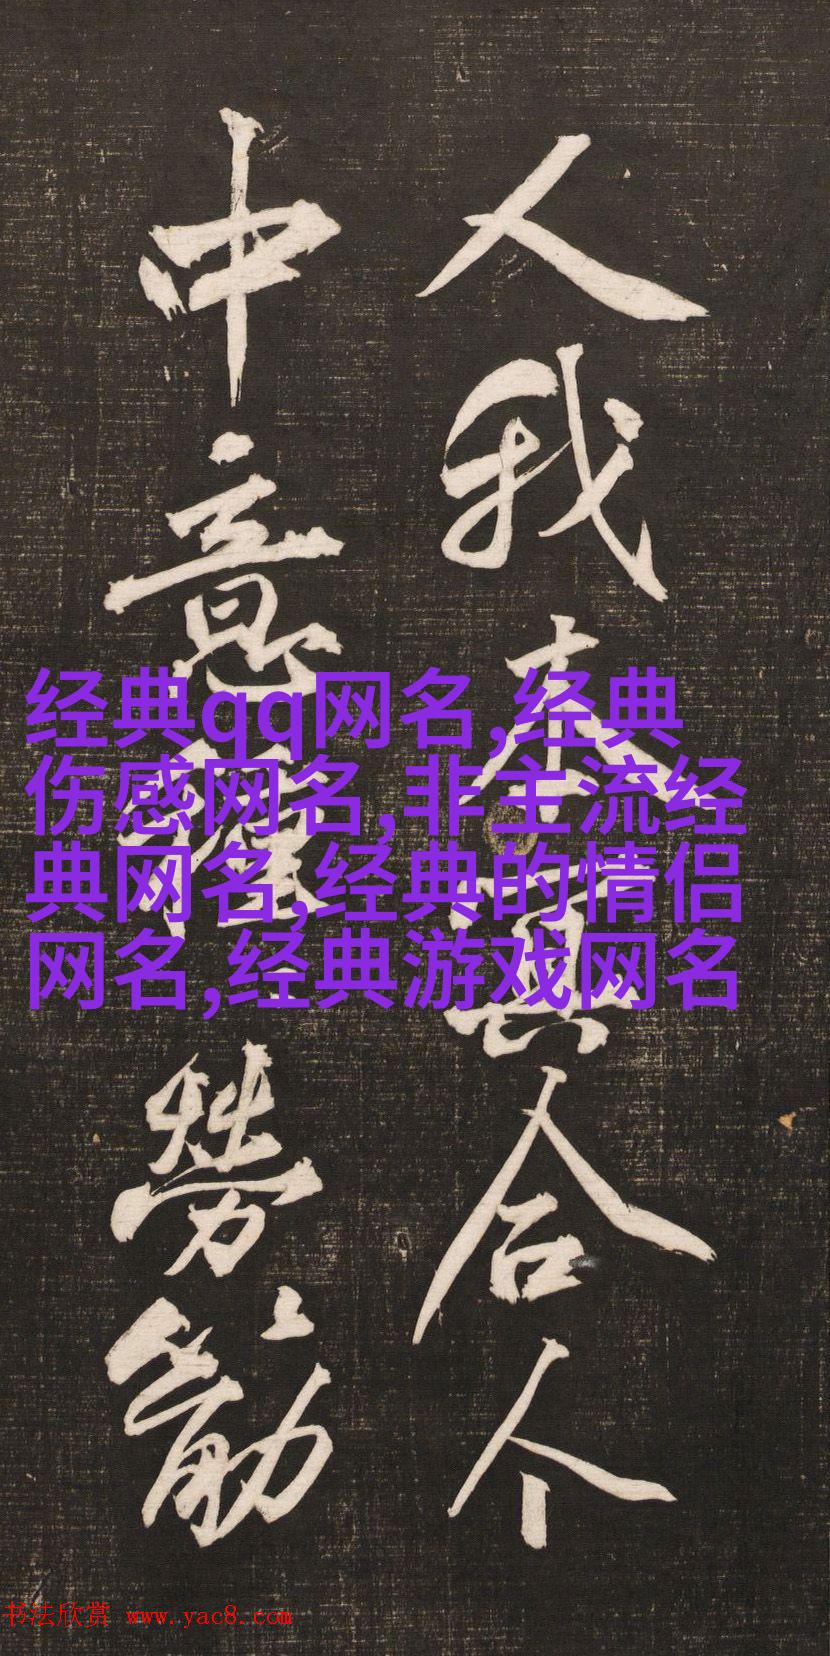 人我本真合个
中意
勞筋
经典qq网名,经典
伤感网名,非主流经
典网名,经典的情侣
网名,经典游戏网名
书法欣赏 www.yac8.com